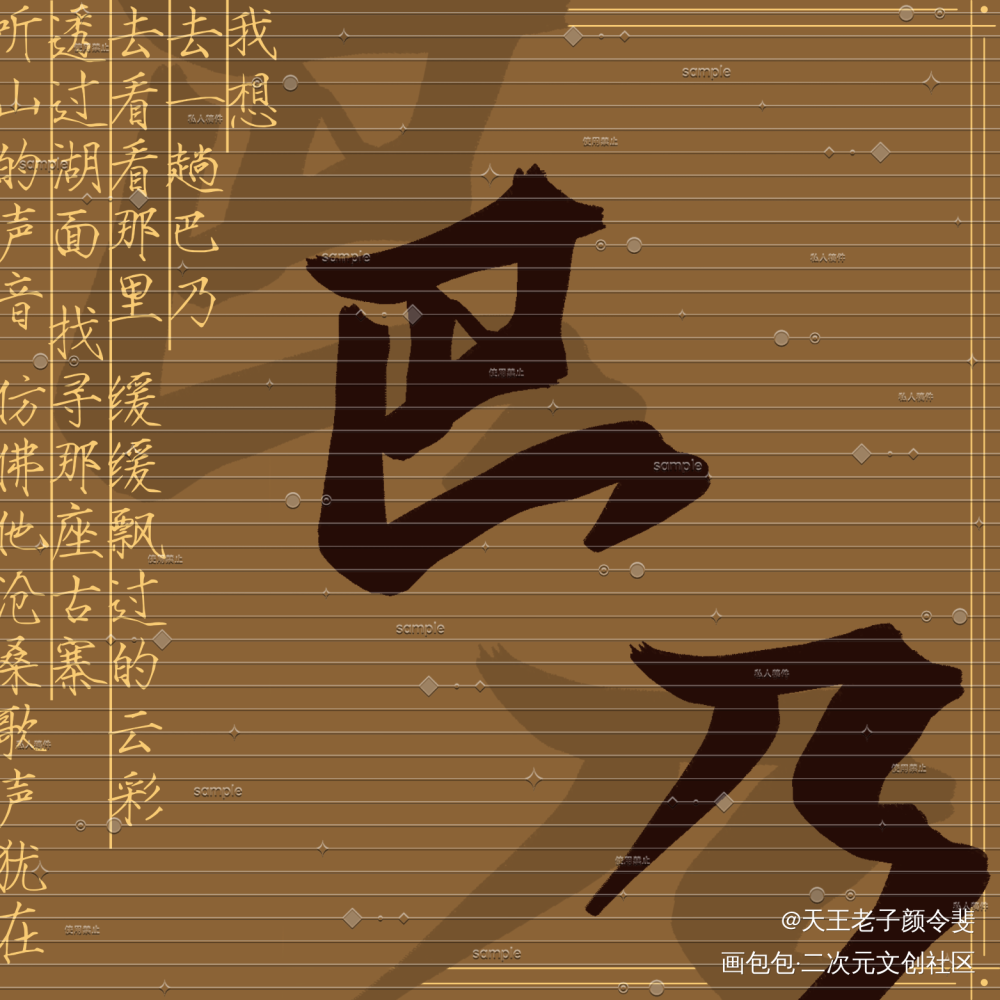 我想
去一趟巴乃
去看看那里 缓缓飘过的云彩
透过湖面 找寻那座古寨
听山的声音 仿佛他沧桑歌声犹在
巴乃
@天王老子颜令斐
画包包·二次元文创社区
sample
sample
sample
sample
sample
sample
sample
私人稿件
私人稿件
私人稿件
私人稿件
私人稿件
私人稿件
使用禁止
使用禁止
使用禁止
使用禁止
使用禁止
使用禁止